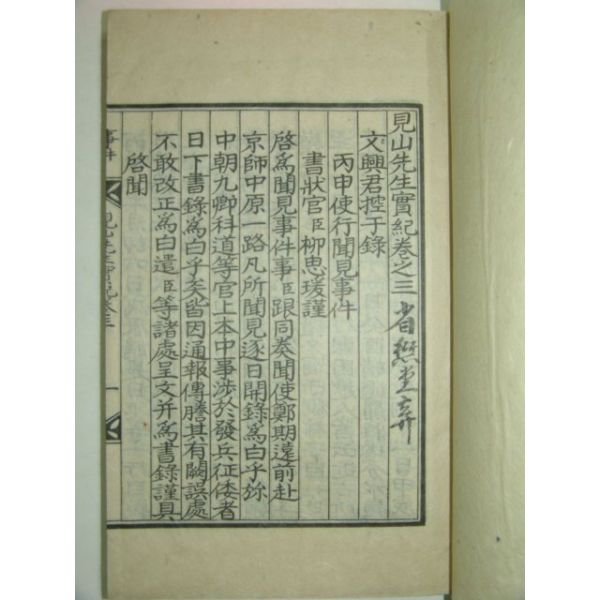 見山先生實紀卷之三
文興君控于錄
丙申使行聞見事件
書狀官臣柳思瑗謹
啓爲聞見事件事臣跟同奏聞使鄭期遠前赴
京師中原一路凡所聞見逐日開錄爲白乎旀
中朝九卿科道等官上本中事涉於發兵征倭者
日下書錄爲白乎矣皆因通報傳謄其有闕誤處
不敢改正爲白遣臣等諸處呈文幷爲書錄謹具
啓聞
事件
見山先生實紀卷三
一